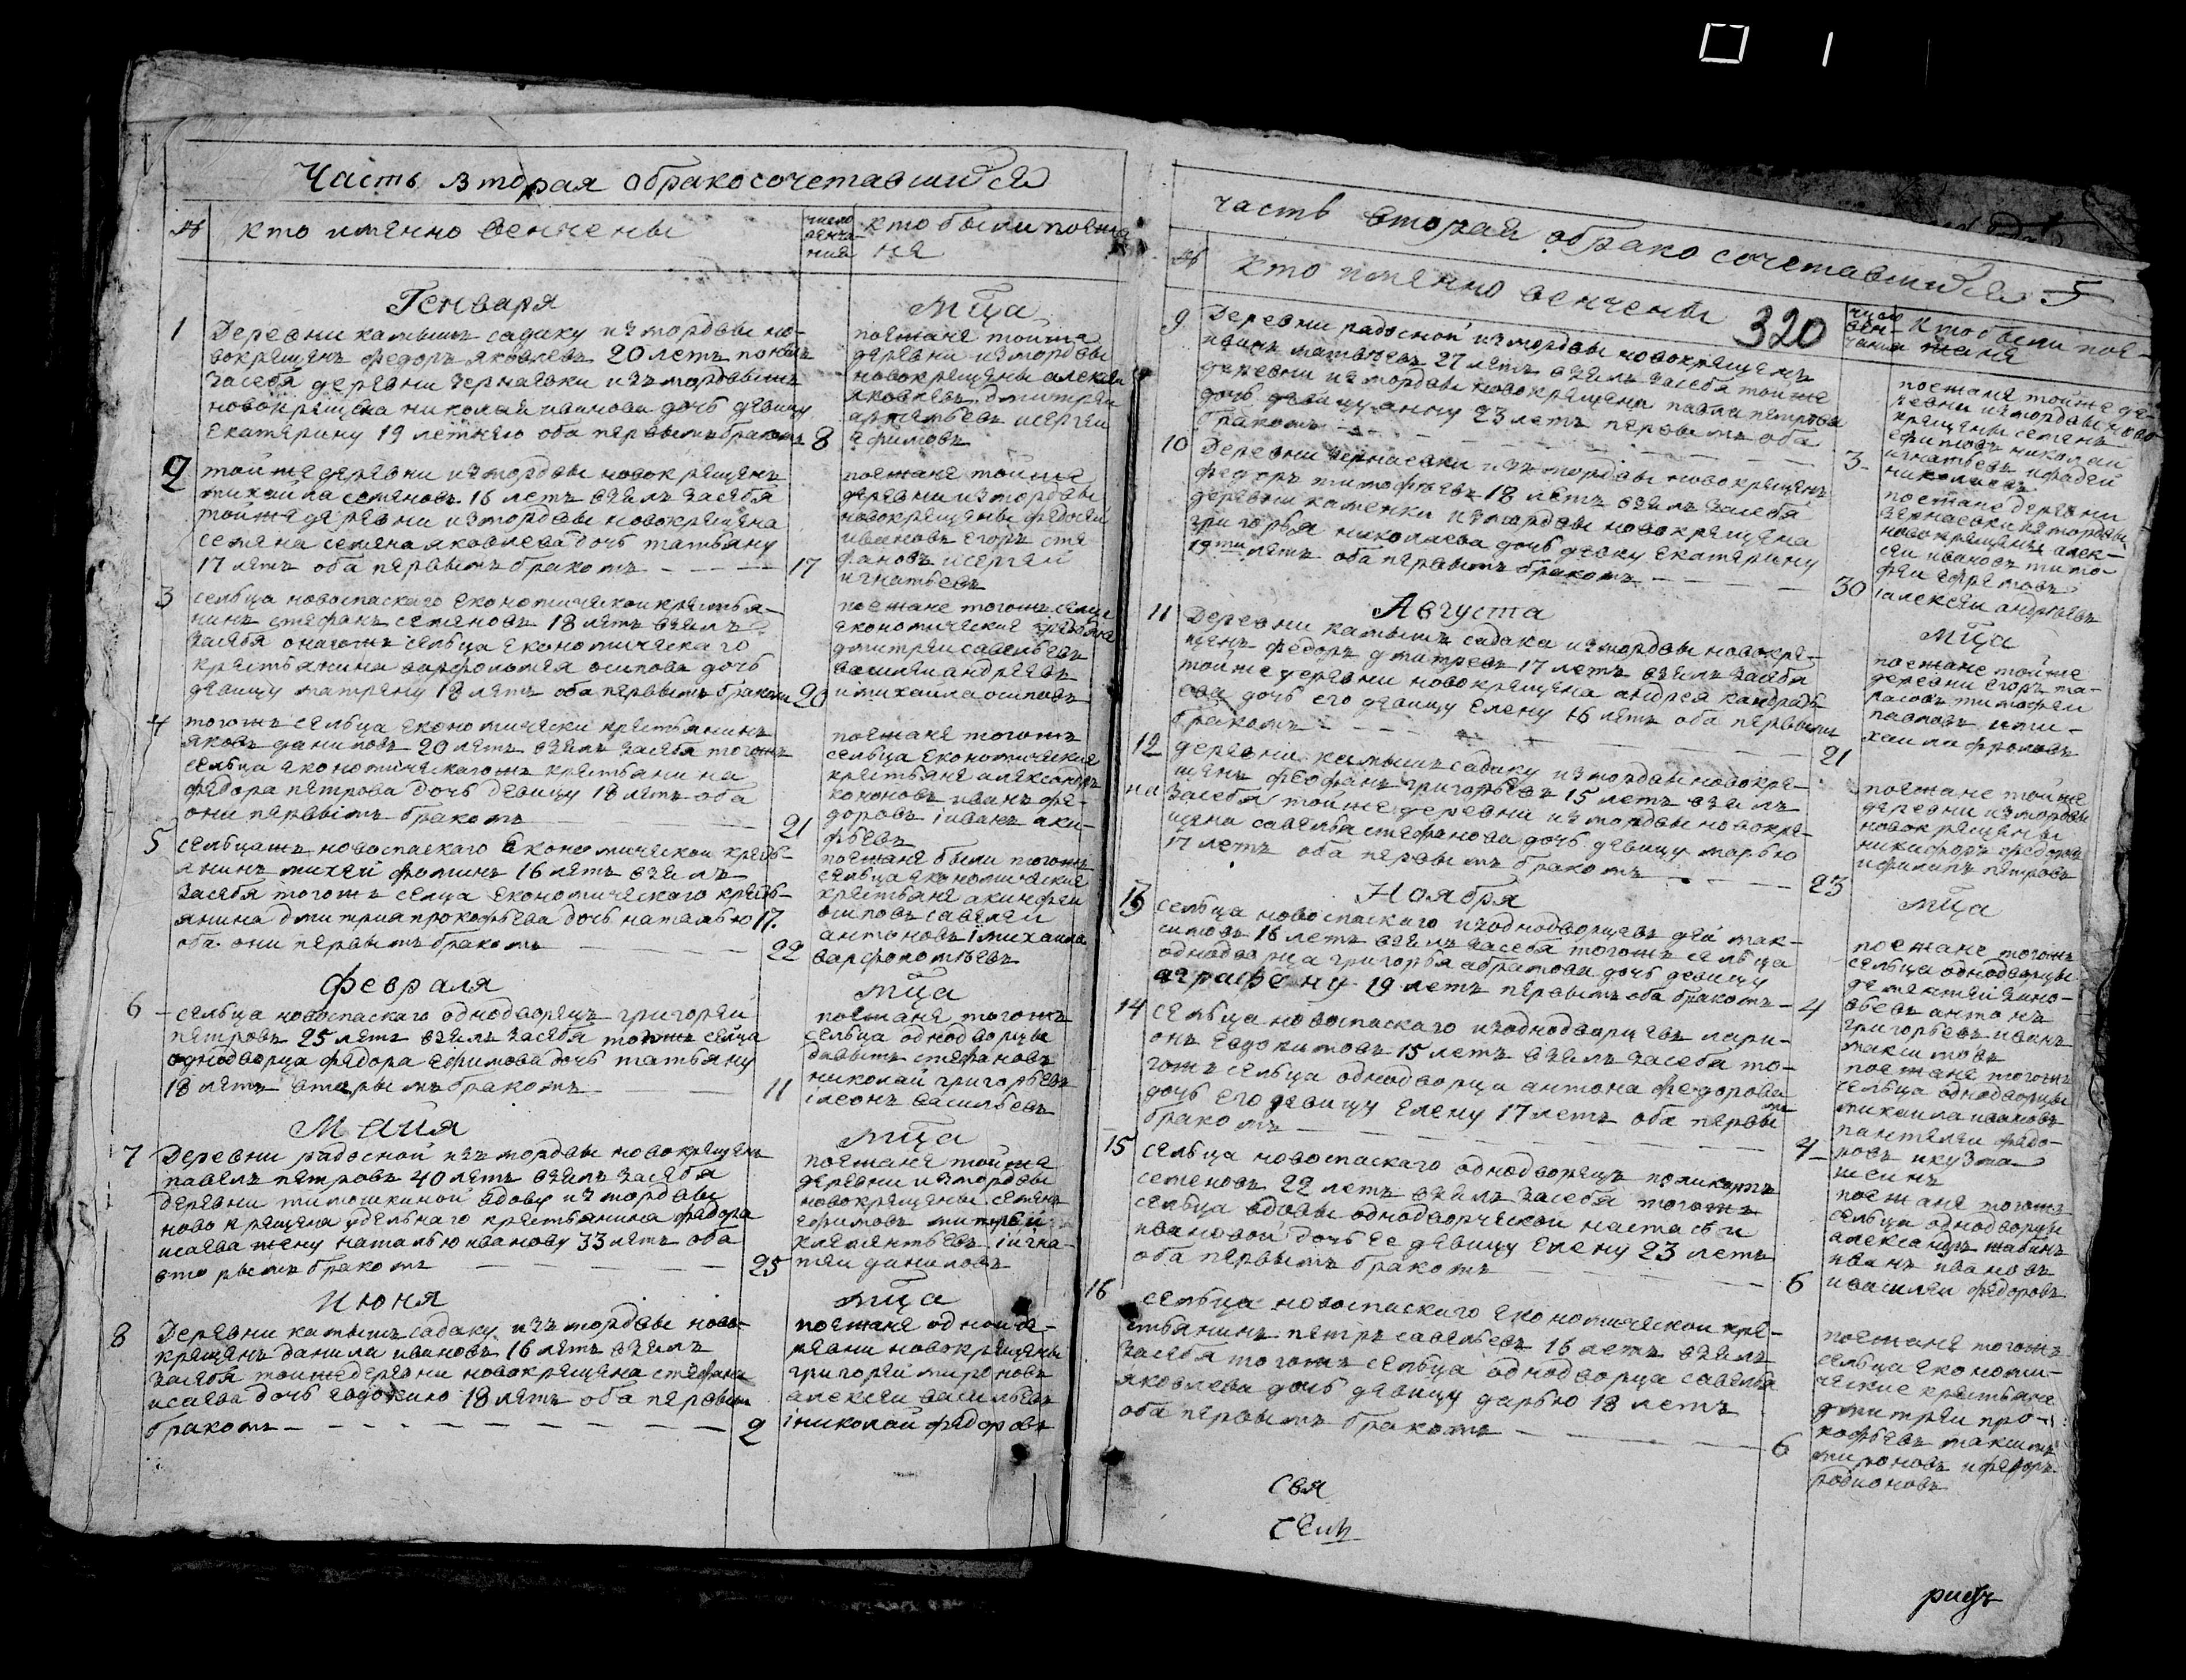 Часть вторая обракосочетавшихся
№
кто имянно венчены
число
венча-
ния
кто были поежа
не
Генваря
Мца
1
Деревни камышъ садаку из мордвы но-
вокрещенъ федоръ яковлевъ 20 летъ понялъ
засебя деревни чернаевки изъ мордвы
новокрещена николая иванова дочь девицу
Екатерину 19 летнею оба первымъ бракомъ
8
поежане тойже
деревни из мордвы
новокрещены алексеи
яковлевъ дмитреи
артемьевъ исергеи
ефимовъ
2
тойже деревни из мордвы новокрещенъ
михаила семеновъ 16 летъ взялъ засебя
тойже деревни из мордвы новокрещена
семена семена яковлева дочь татьяну
17 летъ оба первымъ бракомъ
17
поежане тойже
деревни из мордвы
новокрещены федосеи
ивановъ егоръ сте
фановъ исергеи
игнатьевъ
3
сельца новоспаскаго економическои крестья-
нинъ стефанъ семеновъ 18 летъ взялъ
засебя онагожъ сельца економическаго
крестьянина варфоломея осипова дочь
девицу матрену 18 летъ оба первымъ бракомъ
20
поежане тогожъ сельца
економические
дмитреи савельевъ
василеи андреевъ
имихаила осиповъ
4
тогожъ сельца економически крестьянинъ
яковъ даниловъ 20 летъ взялъ засебя тогожъ
сельца економическагожъ крестьянина
федора петрова дочь девицу 18 летъ оба
они первымъ бракомъ
21
поежане тогожъ
сельца економические
крестьяне александръ
кононовъ иванъ фе-
доровъ iиванъ аки-
фьевъ
5
сельцажъ новоспаскаго економическои кресть-
янинъ михей фоминъ 16 летъ взялъ
засебя тогожъ селца економическаго кресть-
янина дмитрия прокофьева дочь наталью 17.
оба они первымъ бракомъ
22
поежане были тогожъ
сельца економические
крестьяне акинфеи
осиповъ савелеи
антоновъ iмихаила
варфоломеевъ
Февраля
мца
6
сельца новоспаскаго однодворецъ григореи
петровъ 25 летъ взялъ засебя тогожъ селца
однодворца федора ефимова дочь татьяну
18 летъ вторымъ бракомъ
11
поежане тогожъ
сельца однодворцы
давыдъ стефановъ
николай григорьевъ
iлеонъ васильевъ
Маия
мца
7
Деревни радосной изъ мордвы новокрещенъ
павелъ петровъ 40 летъ взялъ засебя
деревни тимошкиной вдову из мордвы
новокрещена удельнаго крестьянина федора
исаева жену наталью иванову 33 летъ оба
вторымъ бракомъ
25
поежане тойже
деревни из мордвы
новокрещены семенъ
ефимовъ
клементьевъ iигна-
теи даниловъ
Июня
мца
8
Деревни камышъ садаку изъ мордвы ново-
крещенъ данила ивановъ 16 летъ взялъ
засебя тоиже деревни новокрещена стефана
исаева дочь евдокию 18 летъ оба первымъ
бракомъ
2
поежане однои де-
ревни новокрещены
григореи мироновъ
алексеи васильевъ
iниколай федоровъ
часть вторая обракосочетавшихся
5
№
кто имянно венчены
320
число
вен-
чания
кто были пое-
жане
9
Деревни радосной из мордвы новокрещенъ
иванъ матвеевъ 27 летъ взялъ засебя тойже
деревни из мордвы новокрещена павла петрова
дочь девицу анну 23 летъ первымъ оба
бракомъ
3
поежане тойже де-
ревни из мордвы ново
крещены семенъ
ефимовъ николаи
игнатьевъ ифадеи
николаевъ
10
Деревни чернаевки изъ мордвы новокрещенъ
федоръ тимофеевъ 18 летъ взялъ засебя
деревни каменки из мордвы новокрещена
григорья николаева дочь девку екатерину
19ти летъ оба первымъ бракомъ
30
поежане деревни
чернаевки из мордвы
новокрещены алек-
сеи ивановъ тимо-
феи ефремовъ
iалексеи андреевъ
Августа
мца
11
Деревни камышъ садака из мордвы новокре-
щенъ федоръ дмитревъ 17 летъ взялъ засебя
тойже деревни новокрещена андрея кандрать-
ева дочь его девицу елену 16 летъ оба первымъ
бракомъ
21
поежане тойже
деревни егоръ та-
расовъ тимофеи
павловъ ими-
хаила фроловъ
12
деревни камышъ садаку из мордвы новокре-
щенъ феофанъ григорьевъ 15 летъ взялъ
на
засебя тойже деревни из мордвы новокре-
щена савелья стефанова дочь девицу марью
17 летъ оба первымъ бракомъ
23
поежане тойже
деревни из мордвы
новокрещены
никифоръ федоровъ
ифилипъ петровъ
Ноября
мца
13
сельца новоспаскаго изоднодворцевъ мак-
симовъ 16 летъ взялъ засебя тогожъ сельца
однодворца григорья абрамова дочь девицу
аграфену 19 летъ первымъ оба бракомъ
4
поежане тогожъ
сельца однодворцы
дементей зино-
вьевъ антонъ
григорьевъ иванъ
максимовъ
14
сельца новоспаскаго изоднодворцевъ лари-
онъ евдокимовъ 15 летъ взялъ засебя то-
гожъ сельца однодворца антона федорова
дочь его девицу елену 17 летъ оба первы
мъ
бракомъ
4
поежане тогожъ
сельца однодворцы
михаила ивановъ
пантелеи федо-
ровъ икузма
15
сельца новоспаскаго однодворецъ поликарпъ
семеновъ 22 летъ взялъ засебя тогожъ
сельца вдовы однодворческои настасьи
ивановой дочь ее девицу елену 23 летъ
оба первымъ бракомъ
6
поежане тогожъ
сельца однодворцы
александръ
иванъ ивановъ
ивасилеи федоровъ
16
сельца новоспаскаго економическои кре-
стьянинъ петръ савельевъ 16 летъ взялъ
засебя тогожъ сельца однодворца савелья
яковлева дочь девицу дарью 18 летъ
оба первымъ бракомъ
6
поежане тогожъ
сельца економи-
ческие крестьяне
дмитреи про-
кофьевъ максимъ
мироновъ ифедоръ
родионовъ
Свя